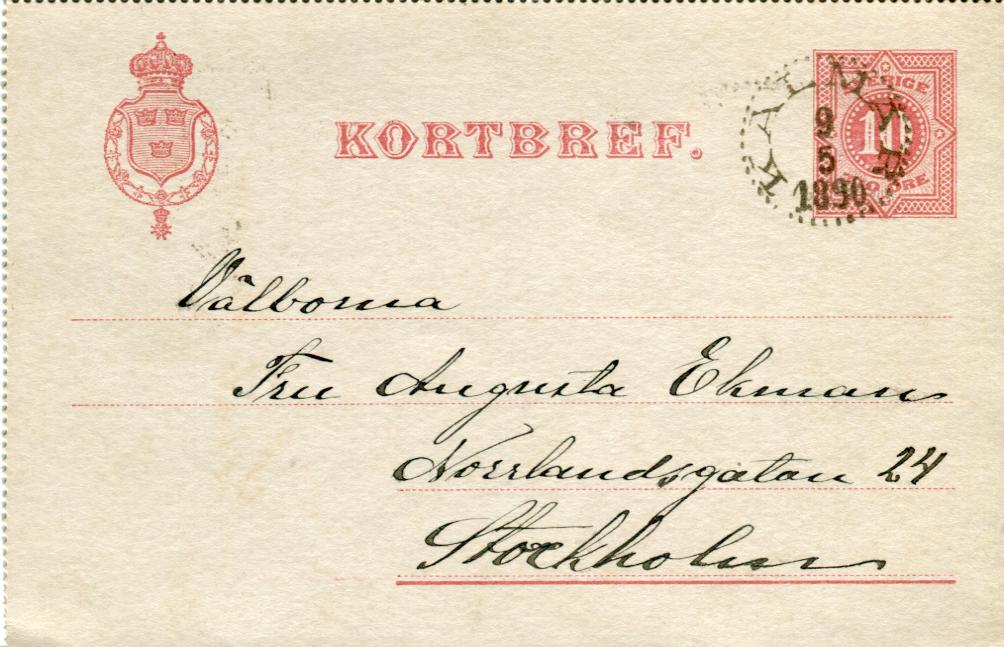 KORTBREF.
SVERIGE
10
TIO ÖRE
KALMAR
9
5
1890
Välborna
Fru Augusta Ekman
Norrlandsgatan 24
Stockholm